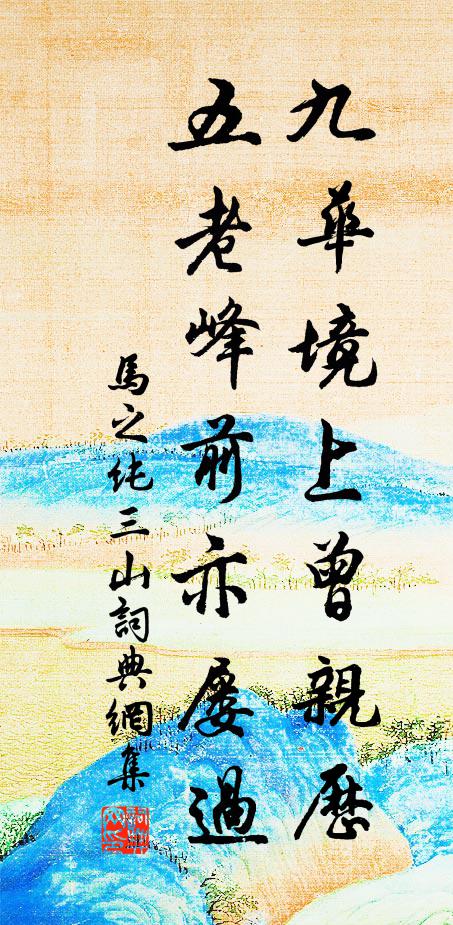 九華境上曾親歷
五老峰前亦屢過
馬之純三山詞典網集